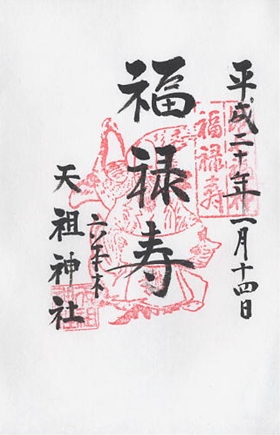 平成二十年一月十四日
福禄寿
福禄寿
六本木
天祖神社